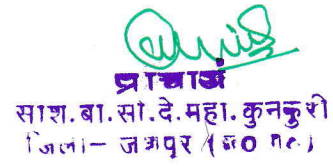 प्राचार्य
शास.बा.सा.दे.महा.कुनकुरी
जिला- जशपुर (छ0 ग0)